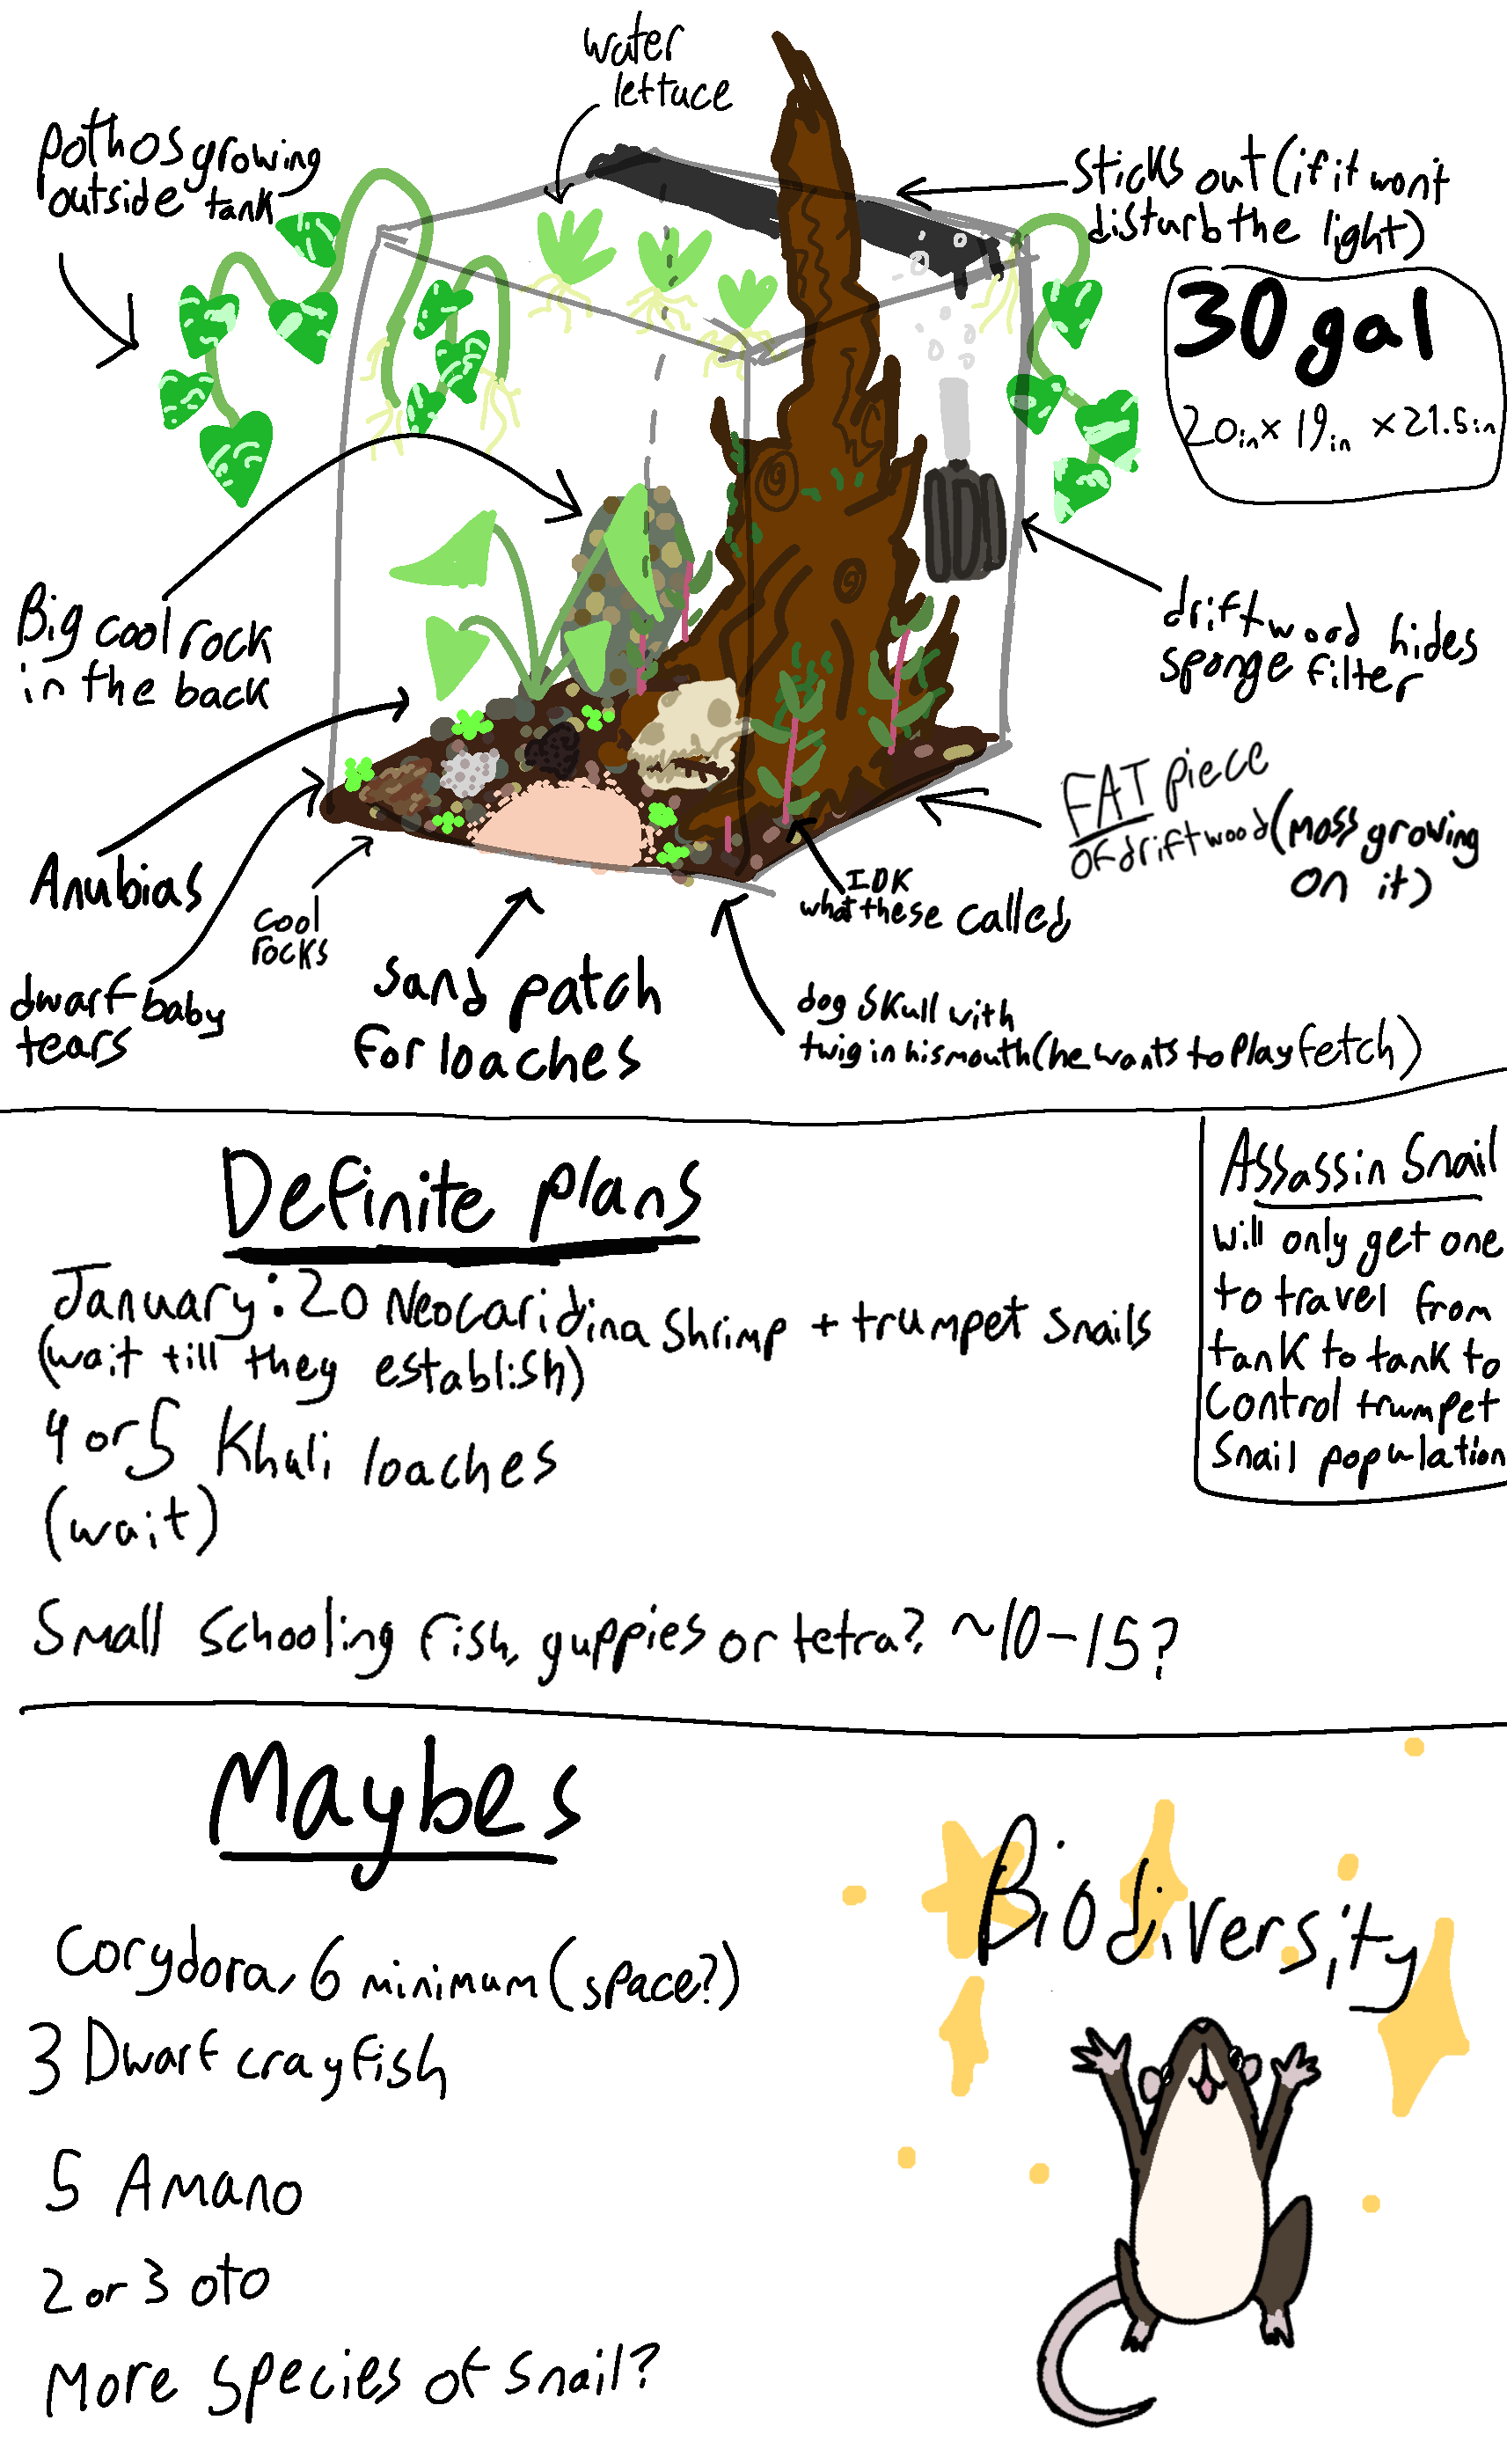 water
lettuce
pothos growing
outside tank
sticks out (if it wont
disturb the light)
30 gal
20in x 19in x 21.5in
Big cool rock
in the back
driftwood hides
sponge filter
FAT piece
of driftwood (moss growing
on it)
Anubias
cool
rocks
IDK
what these called
dwarf baby
tears
sand patch
for loaches
dog skull with
twig in his mouth (he wants to play fetch)
Definite plans
January: 20 Neocaridina shrimp + trumpet snails
(wait till they establish)
4 or 5 Khuli loaches
(wait)
Small schooling fish, guppies or tetra? ~10-15?
Assassin Snail
will only get one
to travel from
tank to tank to
control trumpet
snail population
Maybes
Corydora, 6 minimum (space?)
3 Dwarf crayfish
5 Amano
2 or 3 oto
More species of snail?
Biodiversity